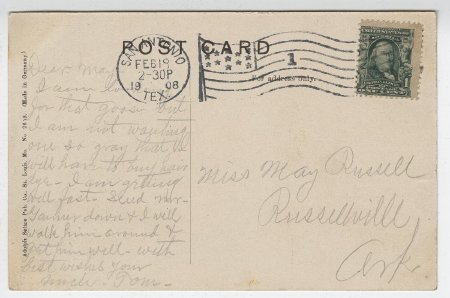 POST CARD
SAN ANTONIO
FEB 19
2-30P
1908
TEX.
1
For address only.
Adolph Selige Pub. Co., St. Louis, Mo. No. 2618 (Made in Germany)
Dear May
I am
for that goose but
I am not wanting
one so gray that he
will have to buy hair
dye - I am getting
well fast - Send
down & I will
walk him around &
get him well - with
best wishes your
Uncle Tom -
Miss May Russell
Russellville
Ark.